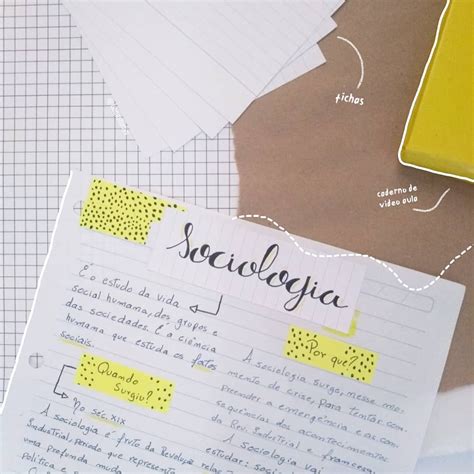 fichas
caderno de
video aula
Sociologia
É o estudo da vida
social humana, dos grupos e
das sociedades. É a ciência
humana que estuda os fatos
sociais.
Quando
Surgiu?
No séc. XIX
A sociologia é fruto da Revolução
Industrial, período que representou
uma profunda
política e
Por que?
A sociologia surge, nesse mo-
mento de crise, para tentar com-
preender a emergência e as con-
sequências dos acontecimentos
da Rev. Industrial e francesa.
A sociologia
estudar: